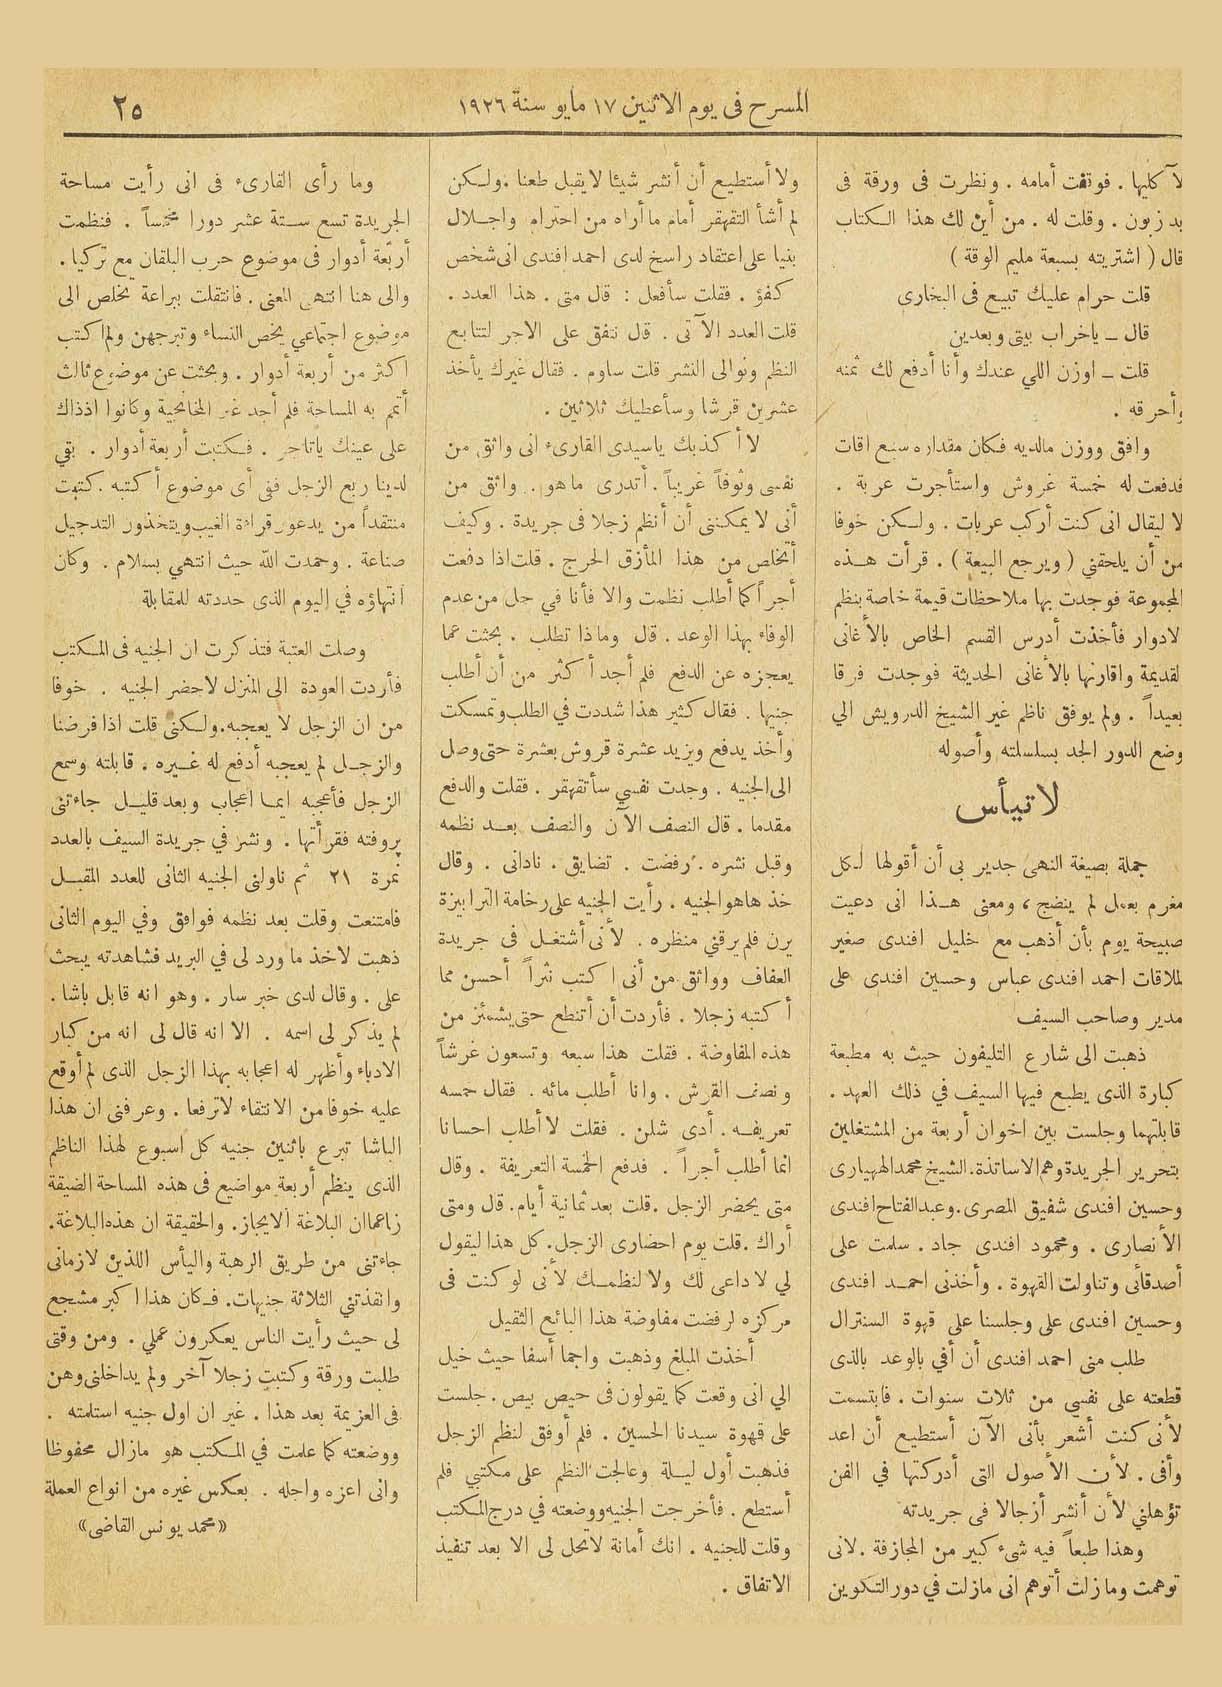 المسرح فى يوم الاثنين ١٧ مايو سنة ١٩٢٦
٢٥
لآكلها . فوقفت أمامه . ونظرت فى ورقة فى
يد زبون . وقلت له . من أين لك هذا الكتاب
قال ( اشتريته بسبعة مليم الوقة )
قلت حرام عليك تبيع فى البخارى
قال ــ ياخراب بيتى وبعدين
قلت ــ اوزن اللي عندك وأنا أدفع لك ثمنه
وأحرقه .
وافق ووزن مالديه فكان مقداره سبع اقات
فدفعت له خمسة غروش واستأجرت عربة .
لا ليقال انى كنت أركب عربات . ولكن خوفا
من أن يلحقني ( ويرجع البيعة ) . قرأت هذه
المجموعة فوجدت بها ملاحظات قيمة خاصة بنظم
لادوار فأخذت أدرس القسم الخاص بالأغانى
لقديمة واقارنها بالأغانى الحديثة فوجدت فرقا
بعيداً . ولم يوفق ناظم غير الشيخ الدرويش الي
وضع الدور الجد بسلسلته وأصوله
لاتيأس
جملة بصيغة النهى جدير بى أن أقولها لكل
مغرم بعمل لم ينضج ، ومعنى هذا انى دعيت
صبيحة يوم بأن أذهب مع خليل افندى صغير
لملاقات احمد افندى عباس وحسين افندى على
مدير وصاحب السيف
ذهبت الى شارع التليفون حيث به مطبعة
كبارة الذى يطبع فيها السيف في ذلك العهد .
قابلتهما وجلست بين اخوان أربعة من المشتغلين
بتحرير الجريدة وهم الاساتذة. الشيخ محمد الههيارى
وحسين افندى شفيق المصرى. وعبد الفتاح افندى
الأنصارى . ومحمود افندى جاد . سلمت على
أصدقائى وتناولت القهوة . وأخذنى احمد افندى
وحسين افندى على وجلسنا على قهوة السنترال
طلب منى احمد افندى أن أفي بالوعد بالذى
قطعته على نفسي من ثلاث سنوات . فابتسمت
لأنى كنت أشعر بأنى الآن أستطيع أن اعد
وأفى . لأن الأصول التى أدركتها في الفن
تؤهلني لأن أنشر أزجالا فى جريدته
وهذا طبعاً فيه شىء كبير من المجازفة . لانى
توهمت وما زلت أتوهم انى مازلت في دور التكوين
ولا أستطيع أن أنشر شيئا لا يقبل طعنا . ولكن
لم أشأ التقهقر أمام ما أراه من احترام واجلال
بنيا على اعتقاد راسخ لدى احمد افندى انى شخص
كفؤ . فقلت سأفعل : قال متى . هذا العدد .
قلت العدد الآتى . قال نتفق على الاجر لتتابع
النظم ونوالى النشر قلت ساوم . فقال غيرك يأخذ
عشرين قرشا وسأعطيك ثلاثين .
لا أكذبك ياسيدى القارىء انى واثق من
نفسى وثوقاً غريباً . أتدرى ماهو . واثق من
أنى لا يمكننى أن أنظم زجلا فى جريدة . وكيف
أتخلص من هذا المأزق الحرج . قلت اذا دفعت
أجراً كما أطلب نظمت والا فأنا في حل من عدم
الوفاء بهذا الوعد . قال وماذا تطلب . بحثت عما
يعجزه عن الدفع فلم أجد أكثر من أن أطلب
جنيها . فقال كثير هذا شددت في الطلب وتمسكت
وأخذ يدفع ويزيد عشرة قروش بعشرة حتى وصل
الى الجنيه . وجدت نفسي سأتقهقر . فقلت والدفع
مقدما . قال النصف الآن والنصف بعد نظمه
وقبل نشره . رفضت . تضايق . نادانى . وقال
خذ هاهو الجنيه . رأيت الجنيه على رخامة الترابيزة
يرن فلم يرقني منظره . لأنى أشتغل فى جريدة
العفاف وواثق من أنى اكتب نثراً أحسن مما
أكتبه زجلا . فأردت أن أتنطع حتى يشمئز من
هذه المفاوضة . فقلت هذا سبعه وتسعون غرشاً
ونصف القرش . وانا أطلب مائه . فقال خمسه
تعريفه . أدى شلن . فقلت لا أطلب احسانا
انما أطلب أجراً . فدفع الخمسة التعريفة . وقال
متى يحضر الزجل . قلت بعد ثمانية أيام. قال ومتى
أراك . قلت يوم احضارى الزجل. كل هذا ليقول
لي لا داعى لك ولا لنظمك لأنى لو كنت فى
مركزه لرفضت مفاوضة هذا البائع الثقيل
أخذت المبلغ وذهبت واجما أسفا حيث خيل
الي انى وقعت كما يقولون فى حيص بيص . جلست
على قهوة سيدنا الحسين . فلم أوفق لنظم الزجل
فذهبت أول ليلة وعالجت النظم على مكتبي فلم
أستطع . فأخرجت الجنيه ووضعته في درج المكتب
وقلت للجنيه . انك أمانة لاتحل لى الا بعد تنفيذ
الاتفاق .
وما رأى القارىء فى انى رأيت مساحة
الجريدة تسع ستة عشر دورا مخمساً . فنظمت
أربعة أدوار فى موضوع حرب البلقان مع تركيا .
والى هنا انتهى المعنى . فانتقلت ببراعة تخلص الى
موضوع اجتماعي يخص النساء وتبرجهن ولم اكتب
اكثر من أربعة أدوار . وبحثت عن موضوع ثالث
أتمم به المساحة فلم أجد غير المخانجية وكانوا اذذاك
على عينك ياتاجر . فكتبت أربعة أدوار . بقي
لدينا ربع الزجل ففى أى موضوع أكتبه . كتبت
منتقداً من يدعون قراءة الغيب ويتخذون التدجيل
صناعة . وحمدت الله حيث انتهي بسلام . وكان
انتهاؤه في اليوم الذى حددته للمقابلة
وصلت العتبة فتذكرت ان الجنيه فى المكتب
فأردت العودة الى المنزل لاحضر الجنيه . خوفا
من ان الزجل لا يعجبه. ولكنى قلت اذا فرضنا
والزجل لم يعجبه أدفع له غيره . قابلته وسمع
الزجل فأعجبه ايما اعجاب وبعد قليل جاءتنى
پروفته فقرأتها . ونشر في جريدة السيف بالعدد
نمرة ٢١ ثم ناولنى الجنيه الثانى للعدد المقبل
فامتنعت وقلت بعد نظمه فوافق وفي اليوم الثانى
ذهبت لاخذ ما ورد لى في البريد فشاهدته يبحث
على . وقال لدى خبر سار . وهو انه قابل باشا .
لم يذكر لى اسمه . الا انه قال لى انه من كبار
الادباء وأظهر له اعجابه بهذا الزجل الذى لم أوقع
عليه خوفا من الانتقاء لاترفعا . وعرفنى ان هذا
الباشا تبرع باثنين جنيه كل اسبوع لهذا الناظم
الذى ينظم أربعة مواضيع فى هذه المساحة الضيقة
زاعما ان البلاغة الايجاز. والحقيقة ان هذه البلاغة.
جاءتنى من طريق الرهبة واليأس اللذين لازمانى
وانقذتني الثلاثة جنيهات. فكان هذا اكبر مشجع
لى حيث رأيت الناس يعكرون عملي . ومن وقتى
طلبت ورقة وكتبت زجلا آخر ولم يداخلنى وهن
فى العزيمة بعد هذا . غير ان اول جنيه استلمته .
ووضعته كما علمت في المكتب هو مازال محفوظا
وانى اعزه واجله . بعكس غيره من انواع العملة
«محمد يونس القاضى»